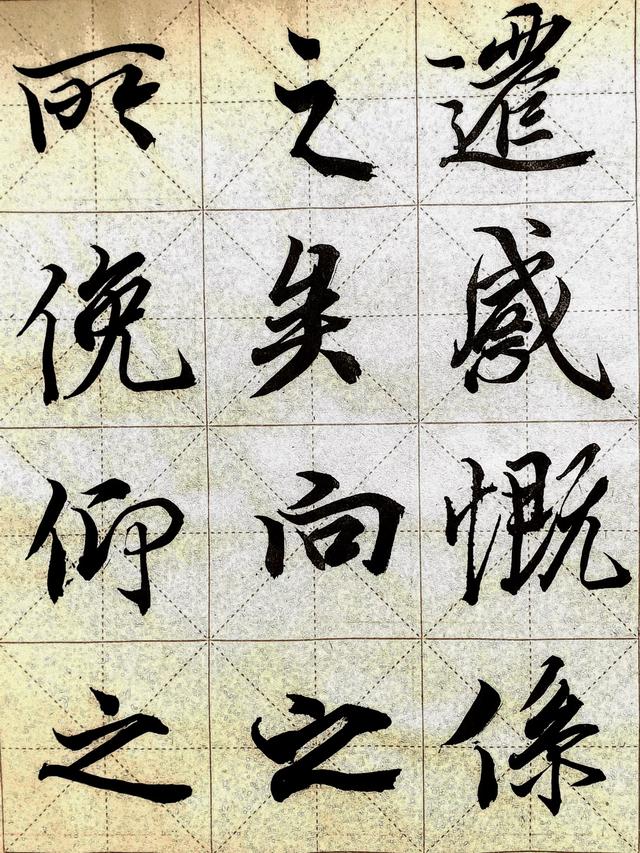 遷感慨係
之矣向之
所俛仰之